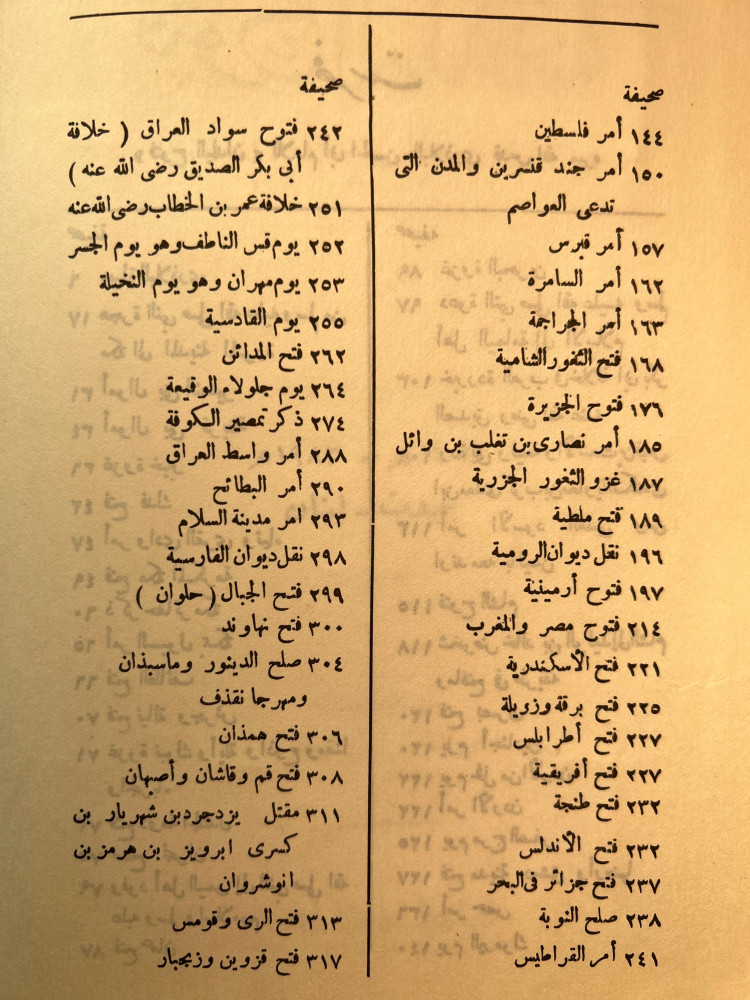 صحيفة
١٤٤ أمر فلسطين
١٥٠ أمر جند قنسرين والمدن التى
تدعى العواصم
١٥٧ أمر قبرس
١٦٢ أمر السامرة
١٦٣ أمر الجراجمة
١٦٨ فتح الثغور الشامية
١٧٦ فتوح الجزيرة
١٨٥ أمر نصارى بن تغلب بن وائل
١٨٧ غزو الثغور الجزرية
١٨٩ فتح ملطية
١٩٦ نقل ديوان الرومية
١٩٧ فتوح أرمينية
٢١٤ فتوح مصر والمغرب
٢٢١ فتح الأسكندرية
٢٢٥ فتح برقة وزويلة
٢٢٧ فتح أطرابلس
٢٢٧ فتح أفريقية
٢٣٢ فتح طنجة
٢٣٢ فتح الأندلس
٢٣٧ فتح جزائر فى البحر
٢٣٨ صلح النوبة
٢٤١ أمر القراطيس
صحيفة
٢٤٢ فتوح سواد العراق ( خلافة
أبى بكر الصديق رضى الله عنه )
٢٥١ خلافة عمر بن الخطاب رضى الله عنه
٢٥٢ يوم قس الناطف وهو يوم الجسر
٢٥٣ يوم مهران وهو يوم النخيلة
٢٥٥ يوم القادسية
٢٦٢ فتح المدائن
٢٦٤ يوم جلولاء الوقيعة
٢٧٤ ذكر تمصير الكوفة
٢٨٨ أمر واسط العراق
٢٩٠ أمر البطائح
٢٩٣ امر مدينة السلام
٢٩٨ نقل ديوان الفارسية
٢٩٩ فتح الجبال ( حلوان )
٣٠٠ فتح نهاوند
٣٠٤ صلح الدينور وماسبذان
ومهرجا نقذف
٣٠٦ فتح همذان
٣٠٨ فتح قم وقاشان وأصبهان
٣١١ مقتل يزدجرد بن شهريار بن
كسرى ابرويز بن هرمز بن
انوشروان
٣١٣ فتح الرى وقومس
٣١٧ فتح قزوين وزنجبار